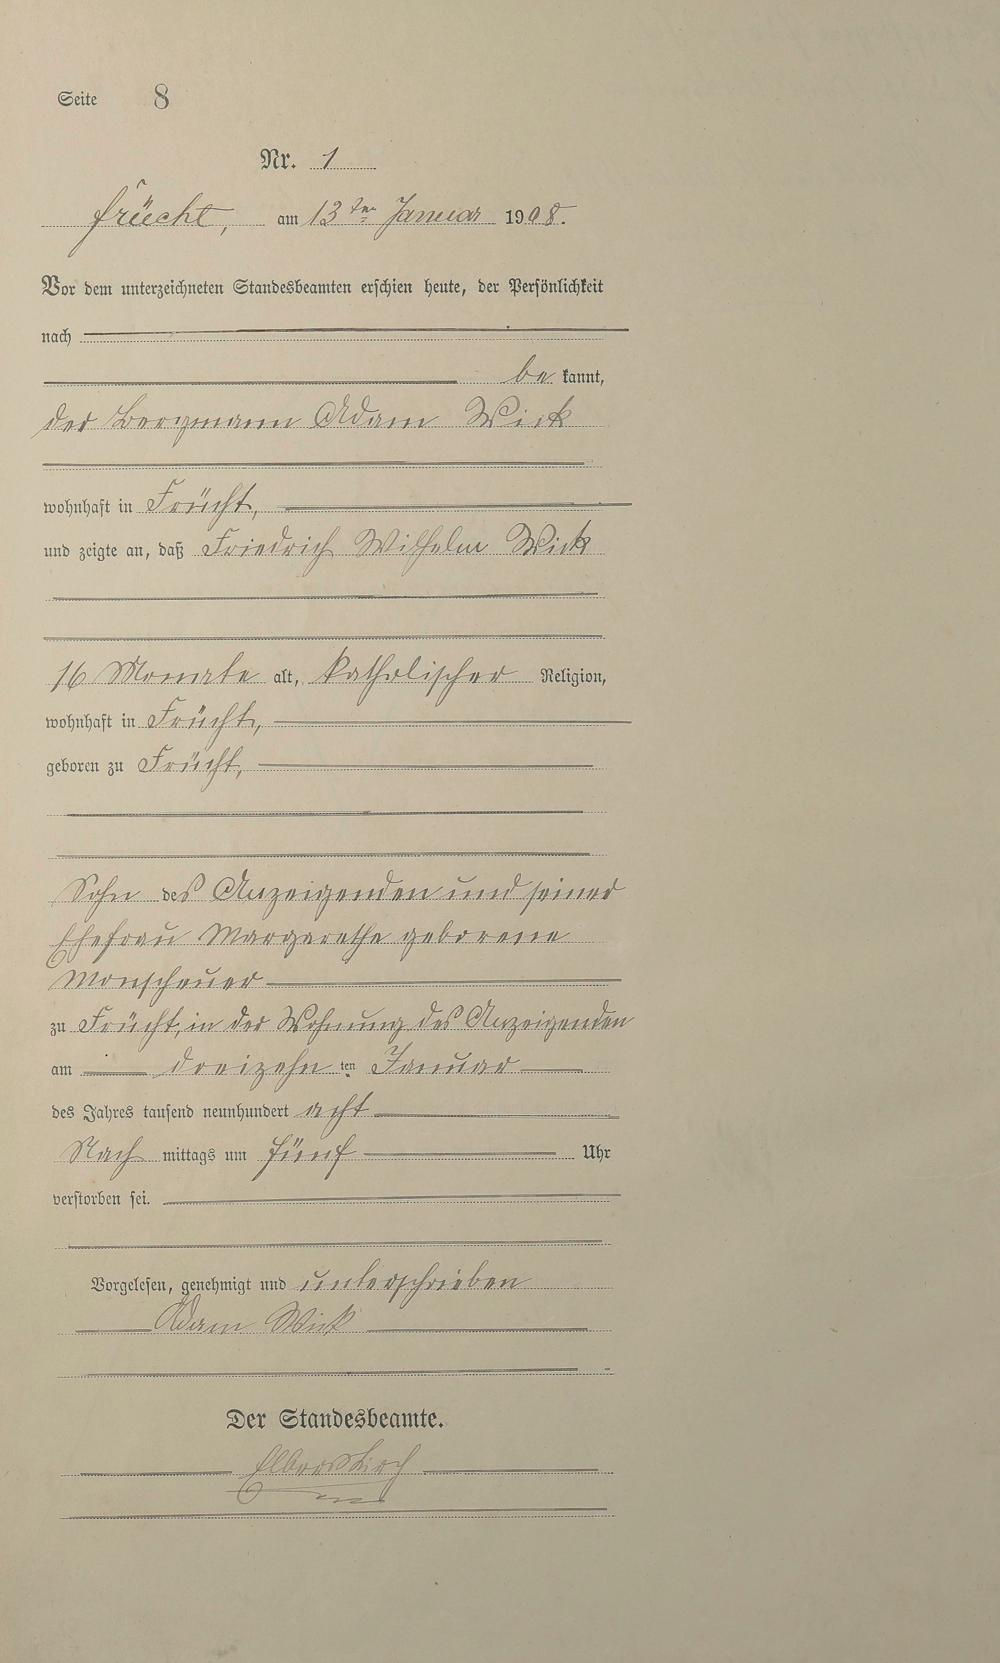 Seite 8
Nr. 1
Früecht, am 13ten Januar 1908.
Vor dem unterzeichneten Standesbeamten erschien heute, der Persönlichkeit
nach
be kannt,
der Bergmann Adam Wick
wohnhaft in Frücht,
und zeigte an, daß Friedrich Wilhelm Wick
16 Monate alt, katholischer Religion,
wohnhaft in Frücht,
geboren zu Frücht,
Sohn des Anzeigenden und seiner
Ehefrau Margarethe geborene
Monscheuer
zu Frücht, in der Wohnung des Anzeigenden
am dreizehn ten Januar
des Jahres tausend neunhundert acht
Nach mittags um fünf Uhr
verstorben sei.
Vorgelesen, genehmigt und unterschrieben
Adam Wick
Der Standesbeamte.